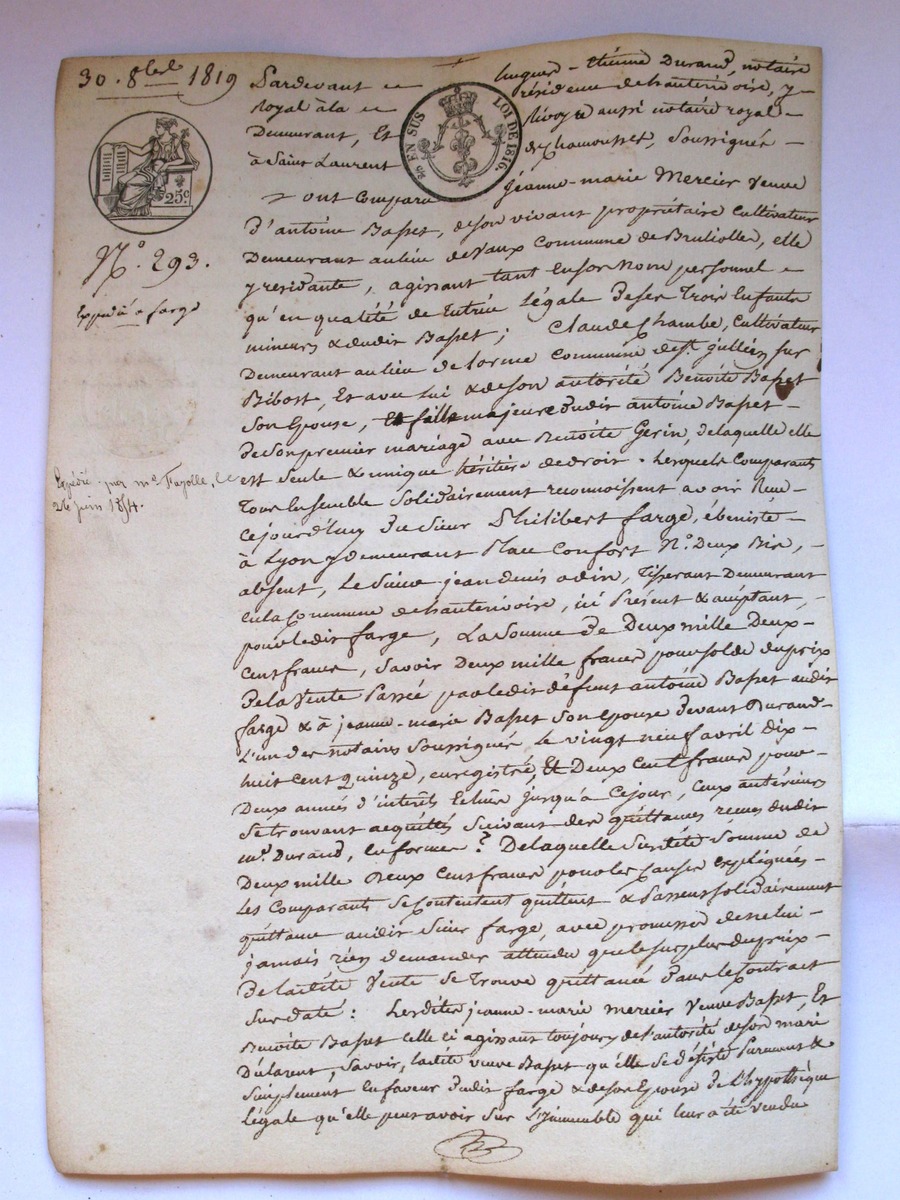 30. 8bre 1819
25c.
N°. 293.
Expédié a farge
Expédié par me Fayolle, Le
26 juin 1854.
EN SUS LOI DE 1816.
Pardevant hugues - étienne Durand, notaire
royal à la résidence de chanterivoire, y
Demeurant, Et aussi notaire royal -
à Saint Laurent de Chamousset, Soussignés -
ont Comparu Jeanne-marie Mercier Veuve
D'antoine Basset, de son vivant propriétaire Cultivateur
Demeurant au lieu de Vaux Commune de Bruliolles, elle
y residante, agissant tant en son Nom personnel
qu'en qualité de tutrice Légale de ses Trois Enfants
mineurs & dudit Basset; Claude Chambe, Cultivateur
Demeurant au lieu de lorme Commune de st. jullien sur
Bibost, Et avec Lui & de son autorité Benoite Basset
Son Epouse, Et fille majeure dudit antoine Basset -
de Son premier mariage avec Benoite Gerin, de laquelle elle
est Seule & unique héritière de droit. Lesquels Comparants
Tous Ensemble Solidairement reconnoissent avoir Reçu
Cejourd'huy du Sieur Philibert farge, ébeniste -
à Lyon y demeurant Place Confort N°. Deux Bis, -
absent, Le Sieur jean denis adin, Tisserant Demeurant
en la Commune de chanterivoire, ici Présent & acceptant, -
pour ledit farge, La Somme de Deux mille Deux -
Cent francs, Savoir Deux mille francs pour Solde du prix
De la Vente Passée par ledit défunt antoine Basset audit
farge & à jeanne-marie Basset Son Epouse Devant Durand
L'un des notaires Soussignés le vingt neuf avril dix-
huit Cent quinze, enregistré, Et Deux Cent francs pour -
Deux années d'interêts Echus jusqu'à Cejour, Ceux antérieurs
Se trouvant acquittés Suivant des quittances reçues dudit
me. Durand, en forme. De laquelle Susdite Somme de
Deux mille Deux Cent francs pour les Causes expliquées -
Les Comparants Se Contentent quittent & Passent Solidairement
quittance audit Sieur farge, avec promesse de ne lui -
jamais rien demander attendu que le Surplus du prix -
De la dite Vente Se Trouve quittancé dans le Contract
Sus daté: Lesdites jeanne-marie mercier Veuve Basset, Et
Benoite Basset Celle ci agissant toujours de l'autorité de son mari
Déclarent, Savoir, ladite veuve Basset qu'elle Se désiste Purement &
Simplement En faveur dudit farge & de son Epouse de L'hypothèque
Légale qu'elle peut avoir Sur L'Immeuble qui leur a été vendu